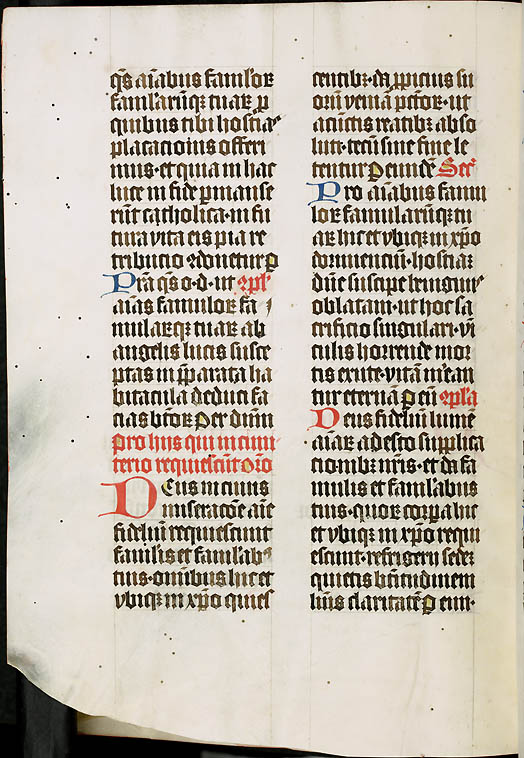 q̄s aīabus famlor
famlarūqꝫ tuaꝝ ꝑ
quibus tibi hostiaꝫ
placacionis offeri
mus· et quia in hac
luce in fide ꝑmanse
rūt catholica· in fu
tura vita eis pia re
tribucio ꝯdonetur ꝑ
Pr̄a q̄s o· d· ut ꝯpl'
aīas famulor fa
mularꝫ tuaꝝ ab
angelis lucis susce
ptas in p̄parata ha
bitacula deduci fa
cias btōꝝ Per dūm
pro hiis qui in cimi
terio requiescūt orō
Deus in cuius
miseracōe aīe
fideliū requiescunt
famlis et famlabꝫ
tuis· omībus hic et
vbiqꝫ in xp̄o quies
centibꝫ· da ꝓpicius su
oꝝ veniā pctōꝝ· ut
a cūctis reatibꝫ abso
luti· tecū sine fine le
tentur Per eundē Secr̄
Pro aīabus famu
loꝝ famularūqꝫ tu
aꝝ hic et vbiqꝫ in xp̄o
dormienciū· hostiaꝫ
dn̄e suscipe benignꝰ
oblatam· ut hoc sa
crificio singulari· vī
culis horrende mor
tis exute· vitā mēan
tur eternā Per eū ꝯpla
Deus fideliū lumē
aīaꝝ adesto supplica
cionibꝫ nr̄is· et da fa
mulis et famlabus
tuis· quoꝝ corꝑa hic
et vbiqꝫ in xp̄o requi
escunt· refrigerii sedeꝫ
quietis btitudinem
lūis claritatē Per eun·